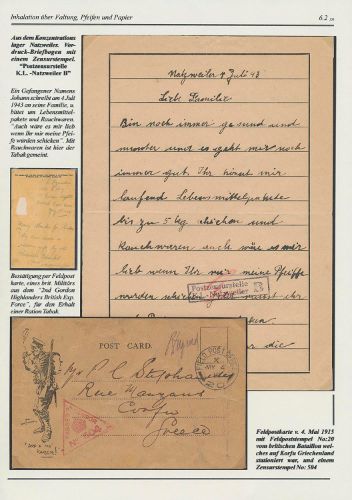 Inhalation über Faltung, Pfeifen und Papier
6.2
Aus dem Konzentrations
lager Natzweiler. Vor-
druck-Briefbogen mit
einem Zensurstempel.
"Postzensurstelle
K.L. -Natzweiler B"
Ein Gefangener Namens
Johann schreibt am 4 Juli
1943 an seine Familie, u.
bittet um Lebensmittel-
pakete und Rauchwaren.
"Auch wäre es mir lieb
wenn Ihr mir meine Pfei-
fe würden schicken". Mit
Rauchwaren ist hier also
Tabak gemeint.
Natzweiler 4 Juli 43
Liebe Familie
Bin noch immer gesund und
munter und es geht mir noch
immer gut. Ihr könnt mir
laufend Lebensmittelpakete
bis zu 5 kg schicken und
Rauchwaren auch wäre es mir
lieb wenn Ihr mir meine Pfeiffe
würden schicken
Postzensurstelle
K.L. Natzweiler B
die
Bestätigung per Feldpost
karte, eines brit. Militärs
aus dem "2nd Gordon
Highlanders British Exp.
Force", für den Erhalt
einer Ration Tabak.
POST CARD.
FIELD POST OFFICE
MY 4
Greece
Feldpostkarte v. 4. Mai 1915
mit Feldpoststempel No:20
vom britischen Bataillon wel-
ches auf Korfu Griechenland
stationiert war, und einem
Zensurstempel No: 504